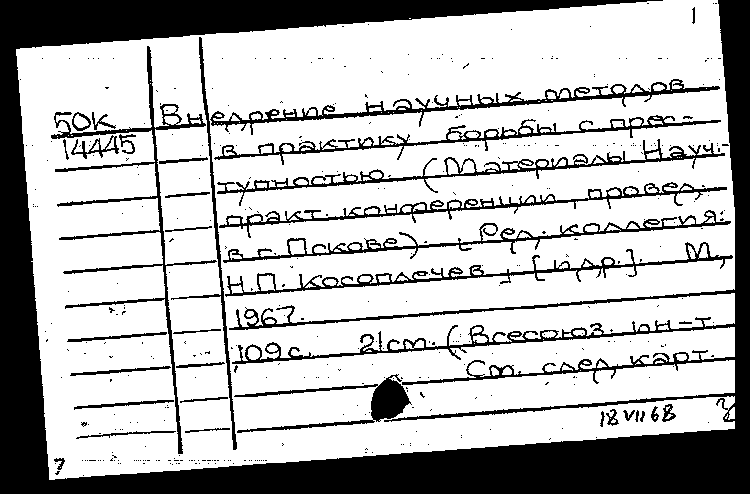 1
50К Внедрение научных методов
14445 в практику борьбы с прес-
тупностью. (Материалы Науч.-
практ. конференции, провед.
в г. Пскове). [Ред. коллегия:
Н.П. Косоплечев] [и др.]. М.,
1967.
109 с. 21 см. (Всесоюз. ин-т
См. след. карт.
18 VII 68
7